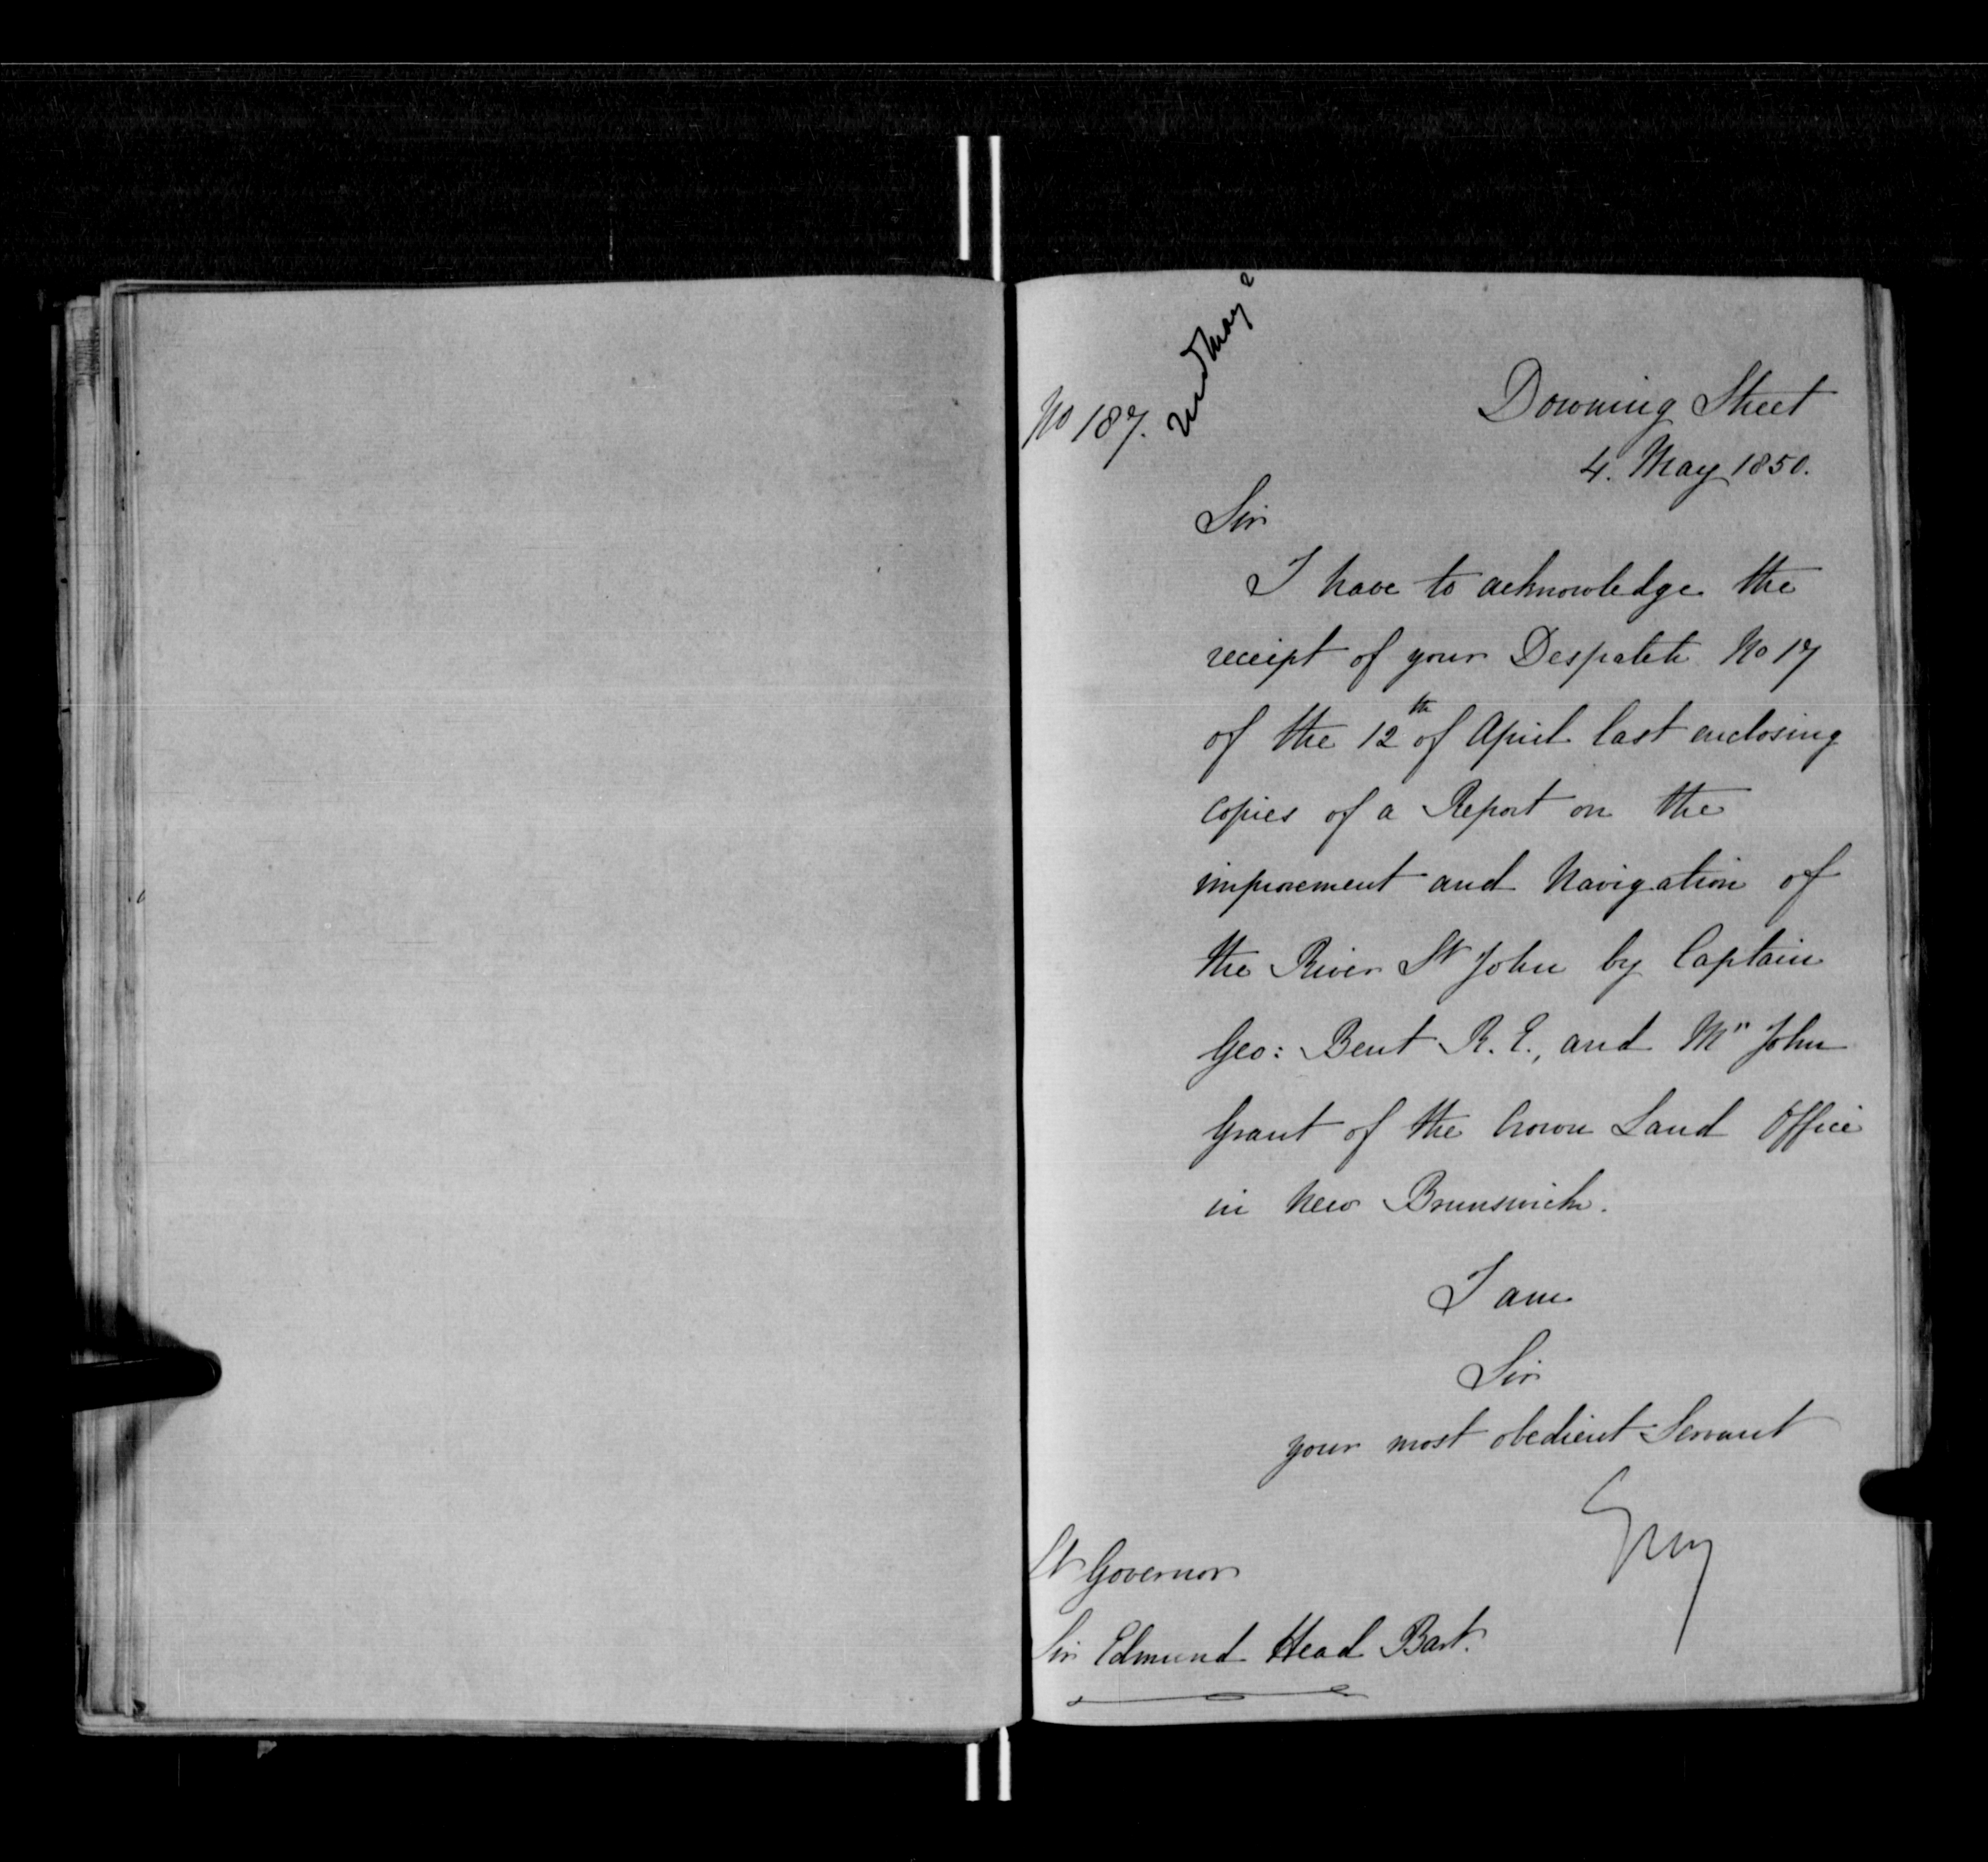 No 187.
Downing Street
4. May 1850.
Sir
I have to acknowledge the
receipt of your Despatch No 17
of the 12th of April last enclosing
copies of a Report on the
improvement and Navigation of
the River St John by Captain
Geo: Bent R. E., and Mr John
Grant of the Crown Land Office
in New Brunswick.
I am
Sir
your most obedient Servant
Grey
Lt Governor
Sir Edmund Head Bart.